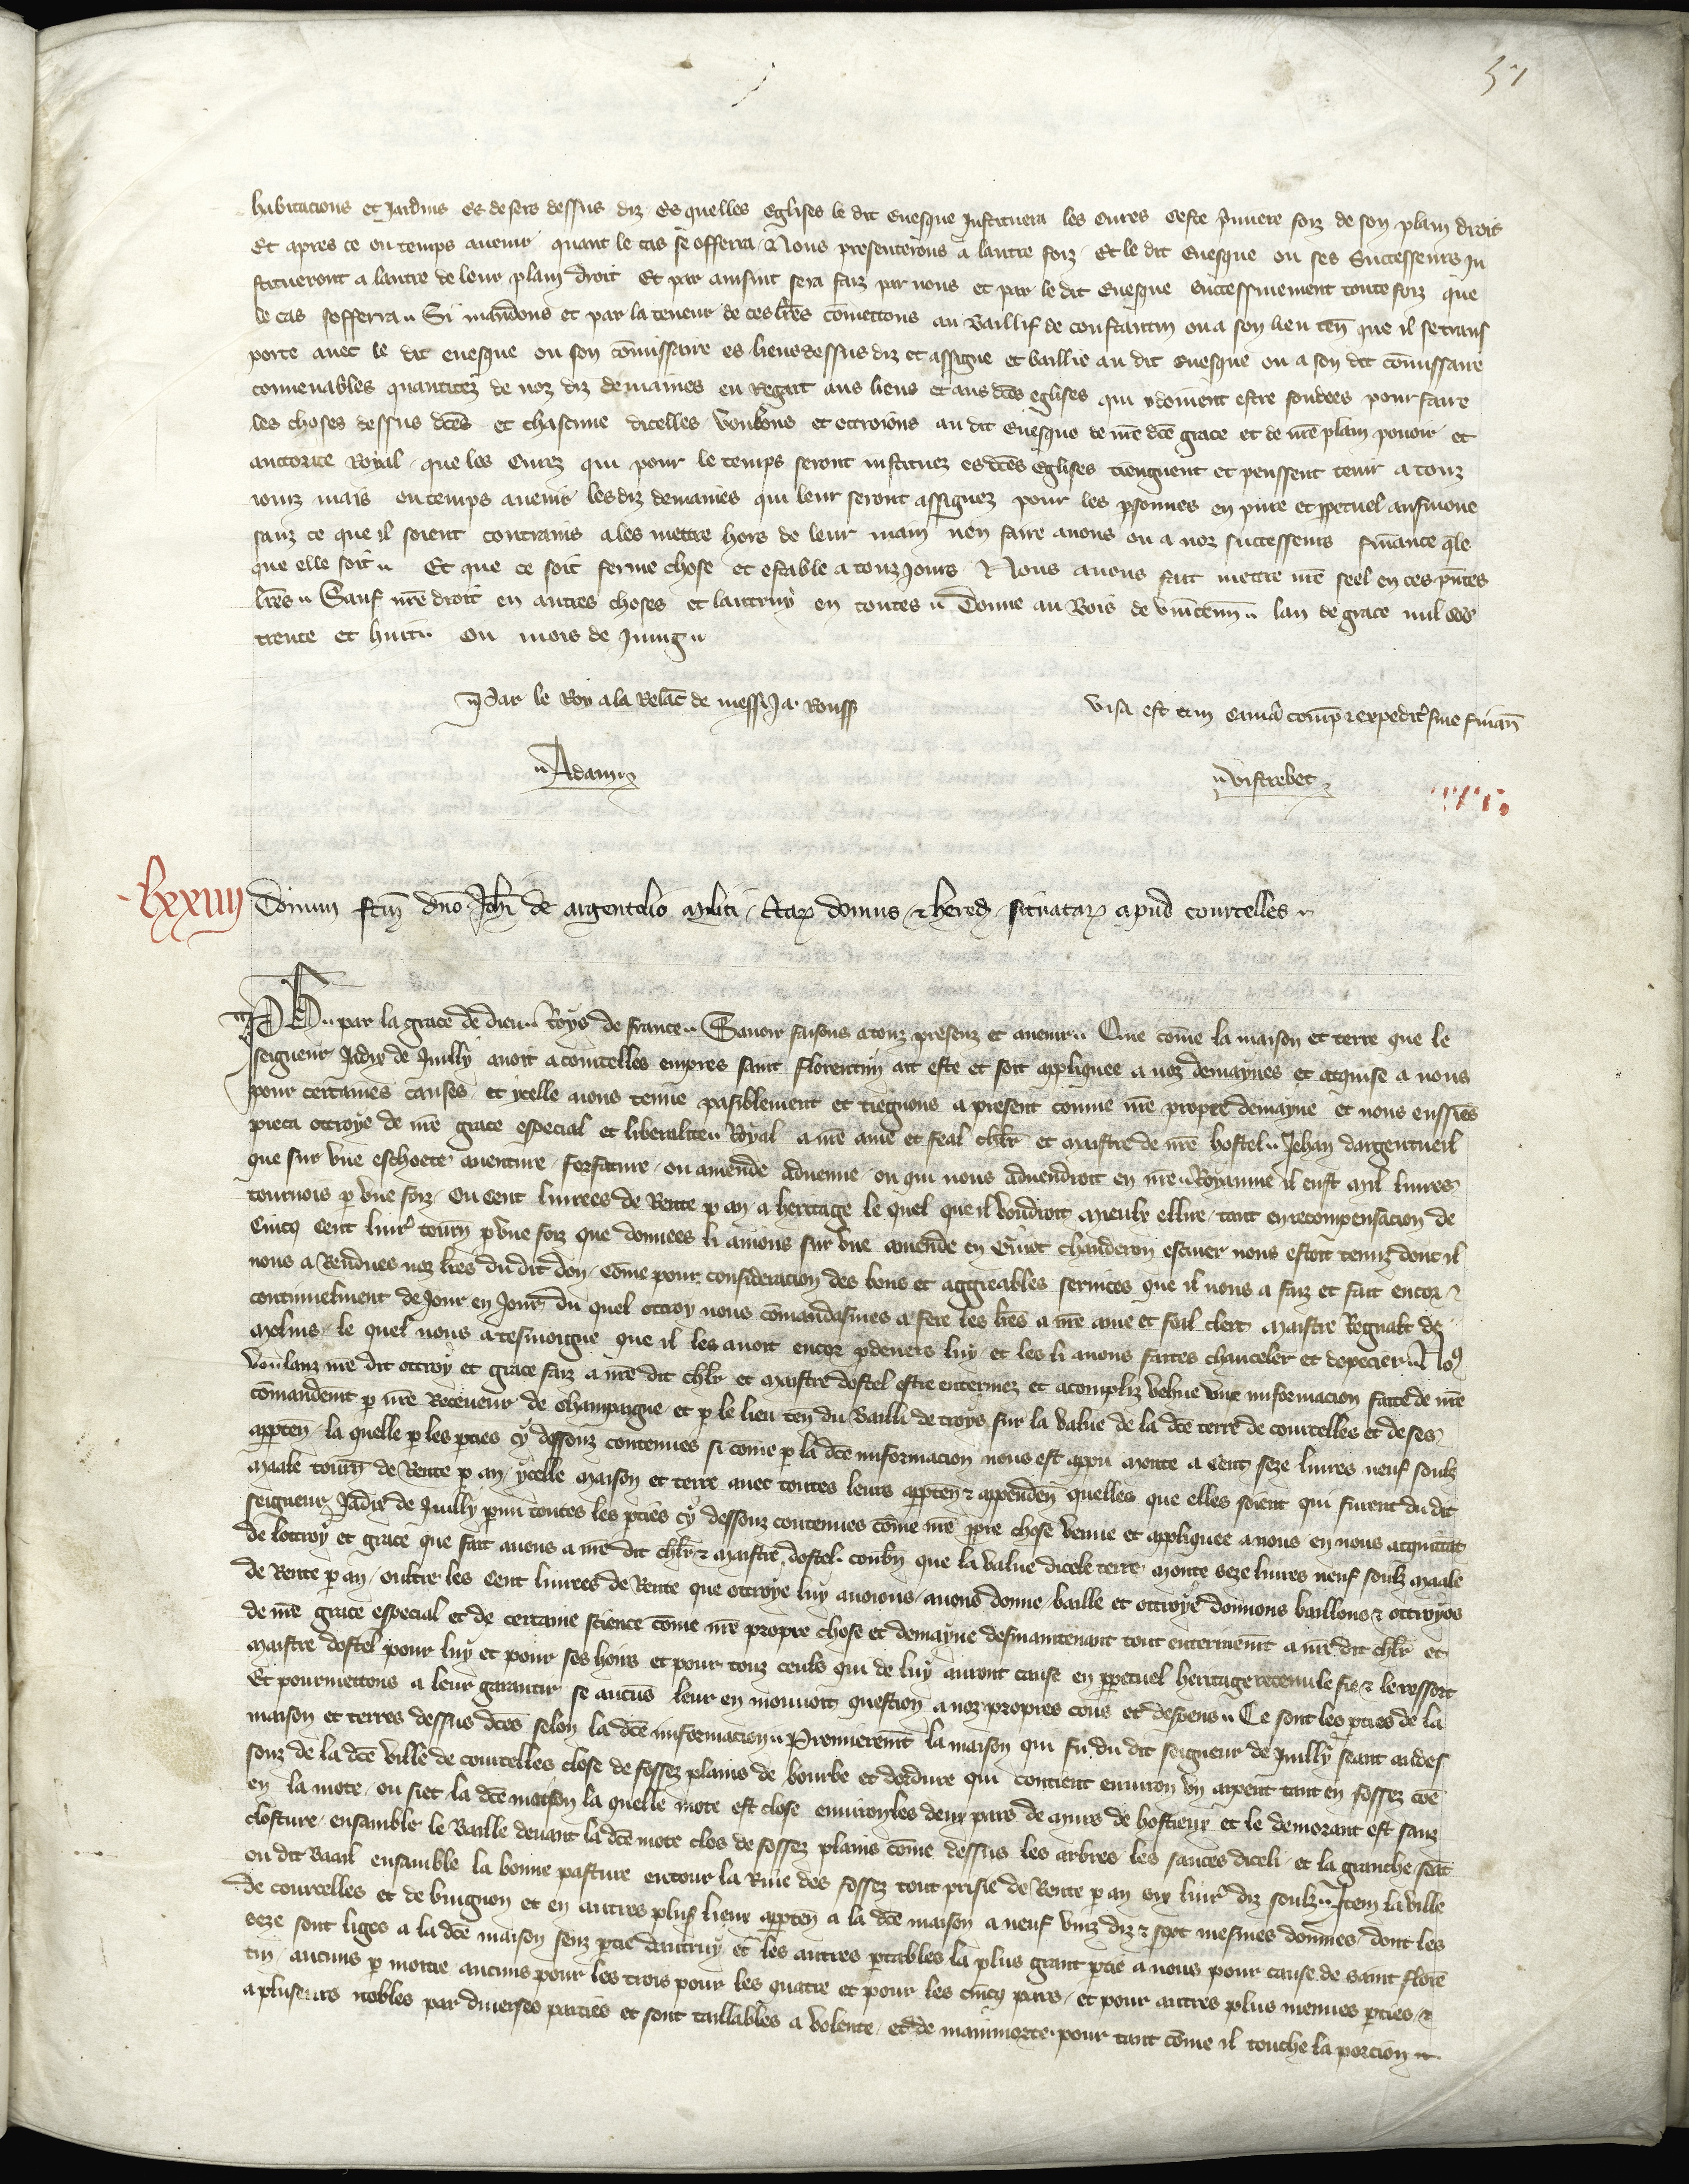 57
habitacions et Jardins es desers dessus diz Es quelles Eglises le dit Euesque Instituera les Cures Ceste p̄miere foiz de son plain droit
Et apres ce ou temps auenir quant le cas se offerra Nous presenterons a lautre foiz Et le dit Euesque ou ses Successeurs In
stitueront a lautre de leur plain droit Et par ainsint sera faiz par nous et par le dit Euesque successiuement toute foiz que
le cas sofferra Si mandons et par la teneur de ces lr̄es cōmettons au Baillif de constantin ou a son lieu ten̄ que il se trans
porte auec le dit euesque ou son cōmissaire es lieus dessus diz et assigne et baillie au dit euesque ou a son dit cōmissaire
conuenables quantitez de noz diz demaines en Regart aus lieus et aus dc̄es eglises qui y doiuent estre fondees pour faire
les choses dessus dc̄es et chascune dicelles Voulons et octroions au dit Euesque de nr̄e dc̄e grace et de nr̄e plain pouoir et
auctorite Royal que les Curez qui pour le temps seront instituez es dc̄es eglises tiengnent et puissent tenir a touz
iourz mais ou temps auenir les diz demaines qui leur seront assignez pour les p̄sonnes en pure et p̄petuel ausmone
sanz ce que il soient contrains a les mettre hors de leur main nen faire a nous ou a noz successeurs finance q̄le
que elle soit Et que ce soit ferme chose et estable a touz Jours Nous auons fait mettre nr̄e seel en ces p̄ntes
lr̄es Sauf nr̄e droit en autres choses et lautruy en toutes Donne au Bois de vincenn̄ lan de grace mil ccc
trente et huit ou mois de Juing
Par le Roy a la Relac̄ de mess Ja. Rouss
Visa est cum camā comp̄ expedit sine finan̄
Adam
Vistrebec
lxxiiii
Donum fc̄m dn̄o Joh̄i de argentolio militi domus hered̄ situatar̄ apud courcelles
Ph par la grace de dieu Roys de france Sauoir faisons a touz presenz et auenir Que cōme la maison et terre que le
seigneur Jadix de Juilly auoit a courcelles empres saint florentin ait este et soit appliquee a noz demaynes et acquise a nous
pour certaines causes et ycelle aions tenue pasiblement et tiegnons a present comme nr̄e propre demayne et nous eussiēs
pieca ottroye de nr̄e grace especial et liberalite Royal a nr̄e ame et feal chl̄r et maistre de nr̄e hostel Jehan dargentueil
que sur vne eschoete auenture forfaiture ou amende aduenue ou qui nous aduendroit en nr̄e Royaume il eust mil liures
tournois p̄ vne foiz ou Cent liurees de Rente p̄ an a heritage le quel que il voudroit mieulx ellire tant en recompensacion de
Cincq Cent liur̄ tourn̄ p̄ vne foiz que donnees li auions sur vne amende en chauderon escuier nous estoit tenuz dont il
nous a Rendues noz lr̄es du dit don Cōme pour consideracion des bons et aggreables seruices que il nous a faiz et fait encor
continuelment de Jour en Jour du quel ottroy nous cōmandasmes a fere les lr̄es a nr̄e ame et feal clerc maistre Regnalt de
molins le quel nous a tesmoigne que il les auoit encor p̄deuers luy et les li auons faites chanceler et depecier
voulanz nr̄e dit ottroy et grace faiz a nr̄e dit chl̄r et maistre dostel estre enterinez et acompliz vehue vne informacion faite de nr̄e
cōmandemt̄ p̄ nr̄e Receueur de champaigne et p̄ le lieu ten̄ du Bailli de troys sur la value de la dc̄e terre de courcelles et de ses
app̄ten̄ la quelle p̄ les p̄ties cy dessouz contenues si come p̄ la dc̄e informacion nous est apparu monte a Cent seze liures neuf soulz
maale tourn̄ de Rente p̄ an ycelle maison et terre auec toutes leurs app̄ten̄ appenden̄ quelles que elles soient qui furent du dit
seigneur Jadix de Juilly p̄mi toutes les p̄ties cy dessouz contenues cōme nr̄e p̄pre chose venue et appliquee a nous en nous acquittāt
de lottroy et grace que fait auons a nr̄e dit chl̄r maistre dostel conbn̄ que la value dicele terre monte seze liures neuf soulz maale
de Rente p̄ an oultre les Cent liurees de Rente que ottroye luy auoions auons donne baille et ottroye donnons baillons ottroyōs
de nr̄e grace especial et de certaine science come nr̄e propre chose et demayne desmaintenant tout enterinemt̄ a nr̄e dit chl̄r et
maistre dostel pour luy et pour ses hoirs et pour touz ceuls qui de luy auront cause en p̄petuel heritage retenu le fie le ressort
Et pourmettons a leur garantir se aucūs leur en mouuoit question a noz propres cous et despens Ce sont les p̄ties de la
maison et terres dessus dc̄es selon la dc̄e informacion Premieremt̄ la maison qui fu du dit seigneur de Juilly seant au des
souz de la dc̄e ville de courcelles close de fossez plains de bourbe et dordure qui contient enuiron vn arpent tant en fossez cōe
en la mote ou siet la dc̄e maison la quelle mote est close enuiron les deux pars de murs et le demorant est sanz
closture ensamble le Baille deuant la dc̄e mote clos de fossez plains cōme dessus les arbres les sauces diceli et la granche seāt
ou dit Baail ensamble la bonne pasture entour la Riue des fossez tout prisie de Rente p̄ an six liur̄ diz soulz Item la ville
de courcelles et de buignon et en autres plus̄ lieux app̄ten̄ a la dc̄e maison a neuf vinz diz sept mesnies donmes dont les
seze sont liges a la dc̄e maison senz p̄tie dautruy et les autres p̄tables la plus grant p̄tie a nous pour cause de saint florē
tin aucuns p̄ moitie aucuns pour les trois pour les quatre et pour les cincq pars et pour autres plus menues p̄ties
a pluseurs nobles par diuerses parties et sont taillables a volente et de mainmorte pour tant cōme il touche la porcion